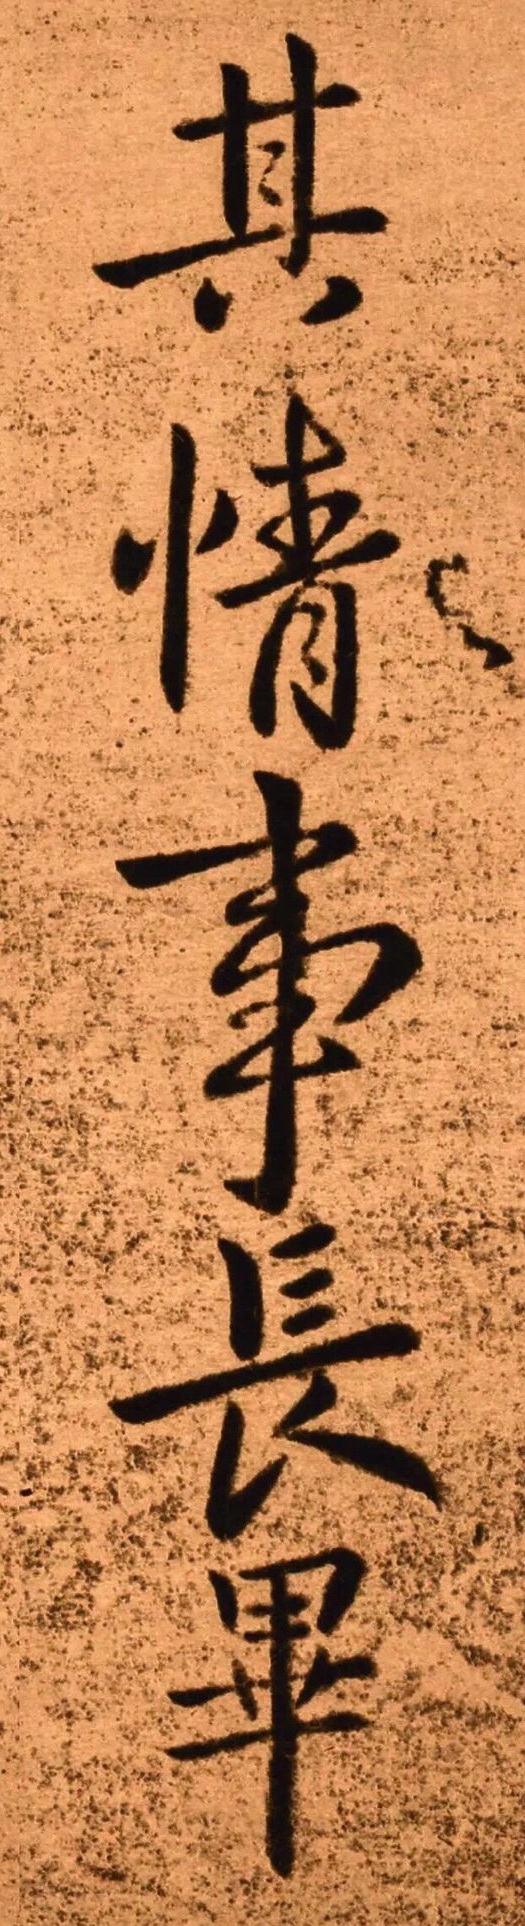 其情事長畢